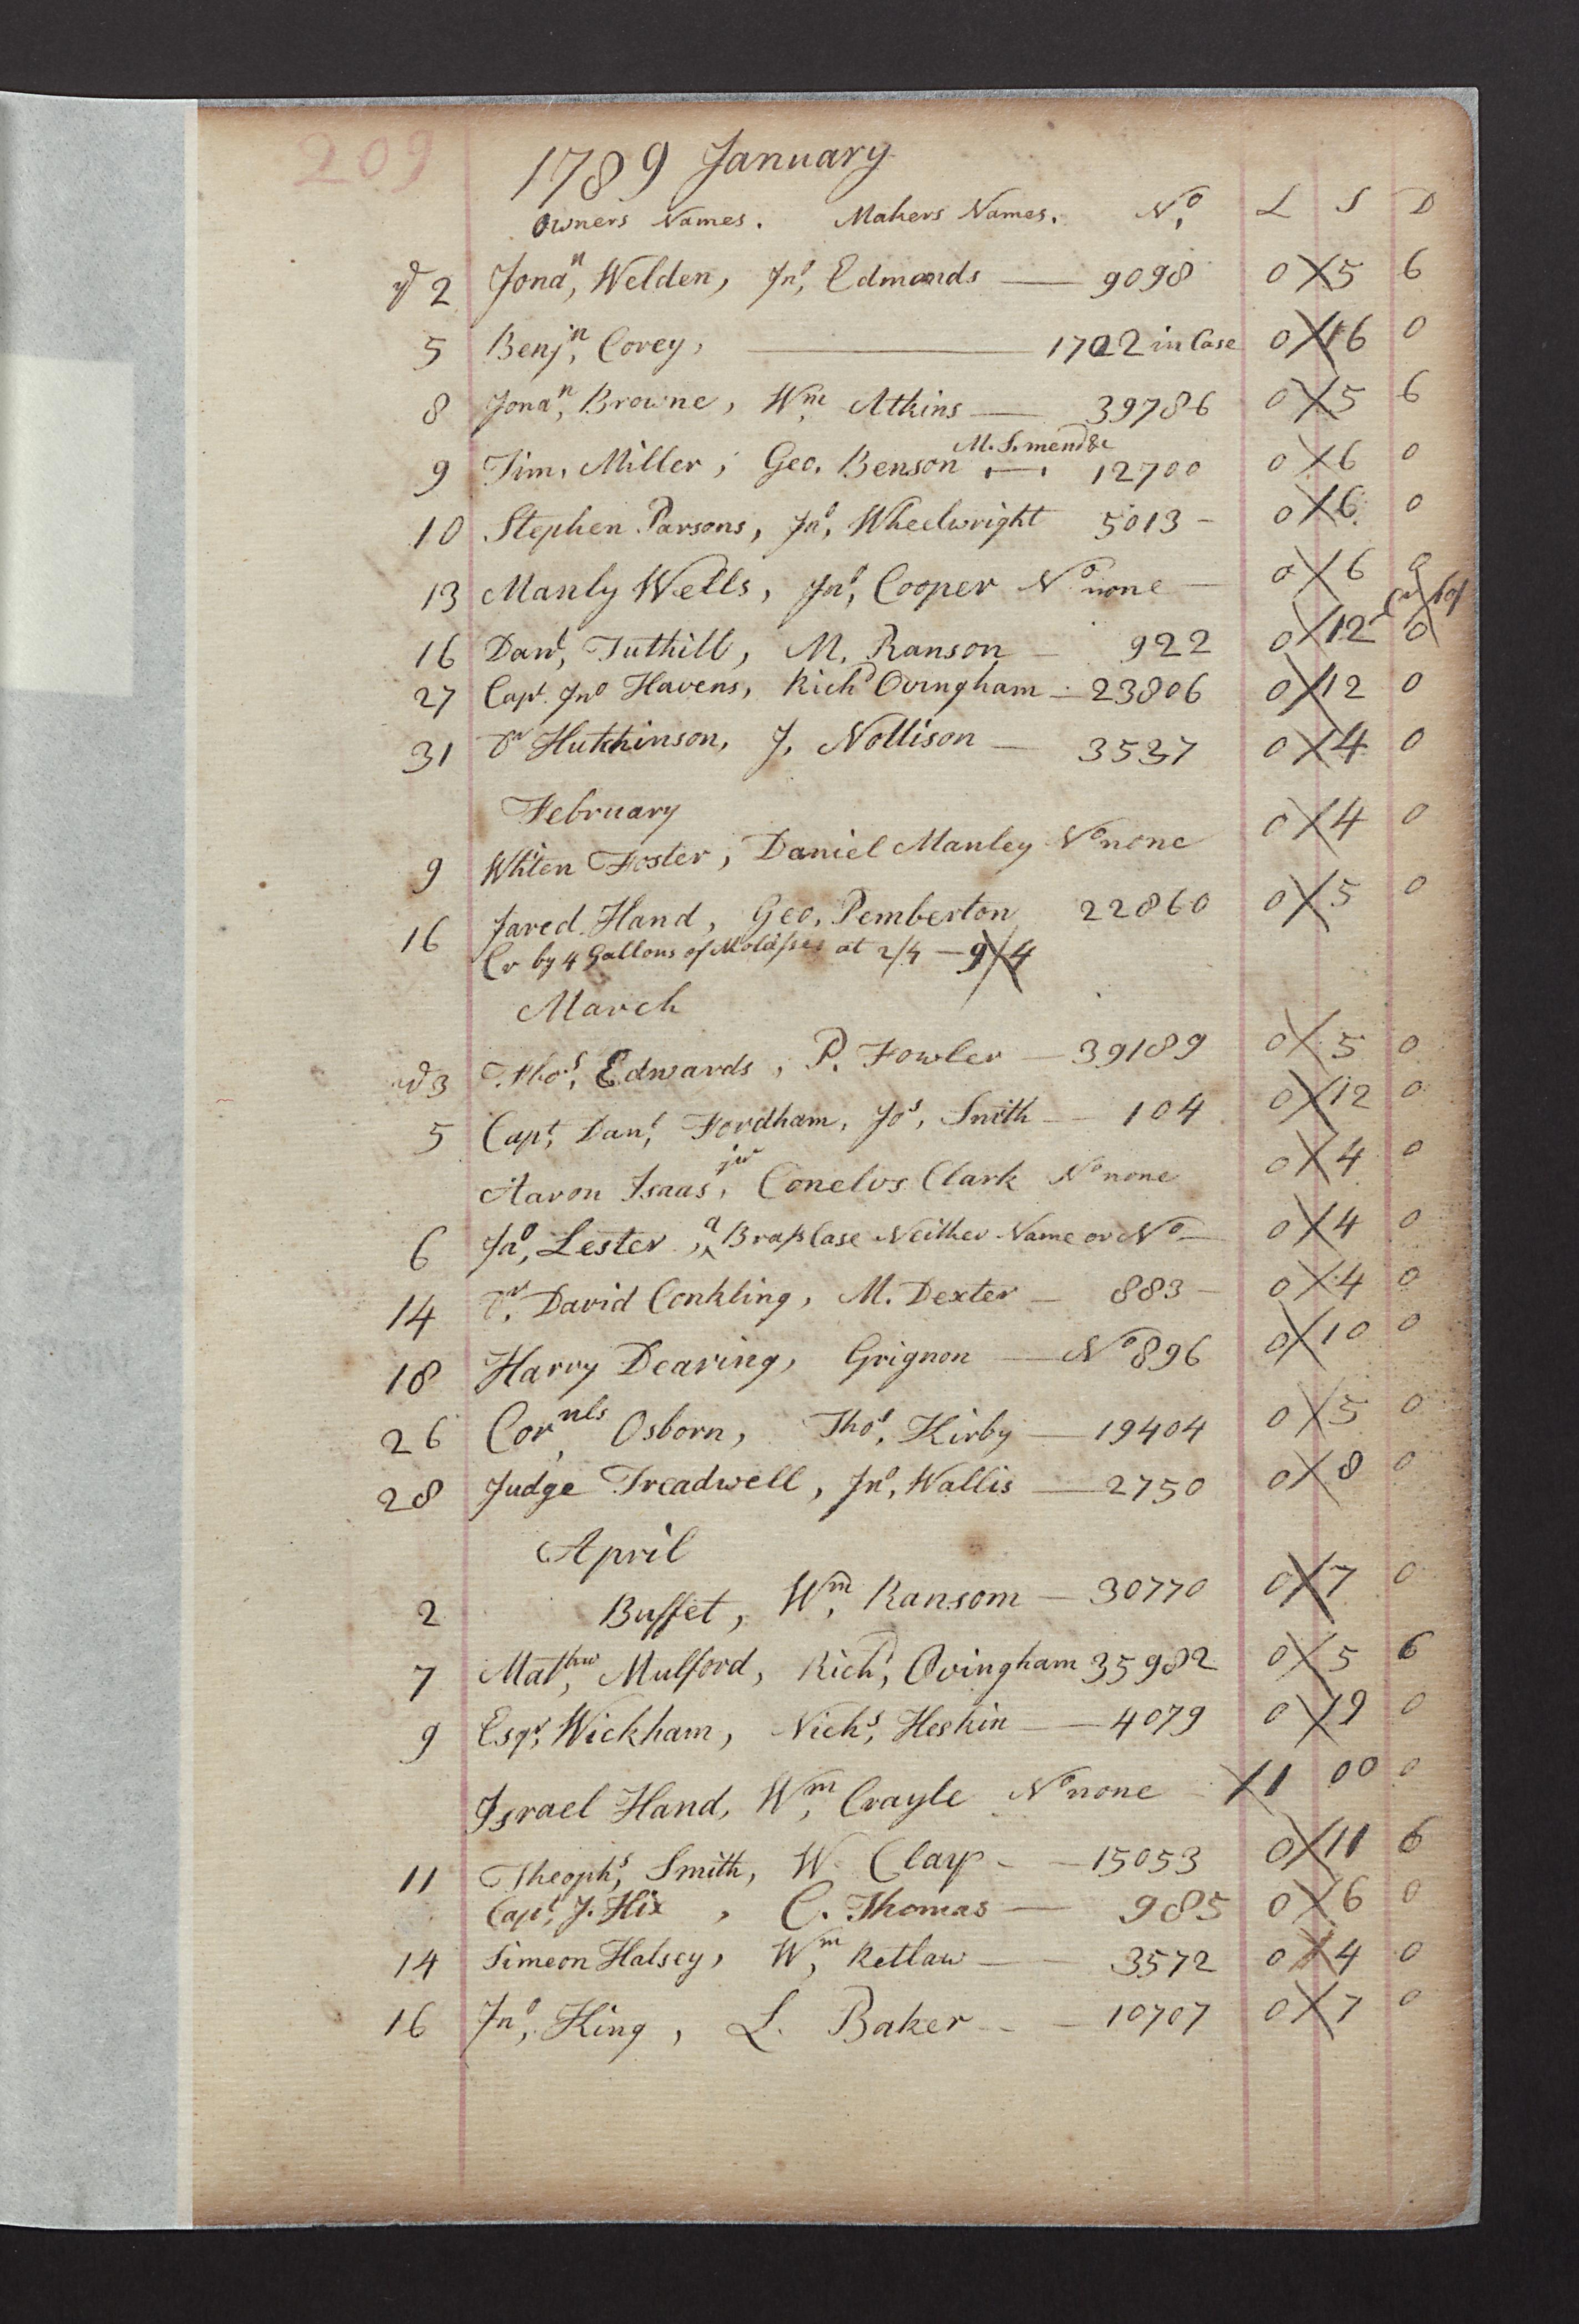 209
1789 January
Owners Names. Makers Names. No. L S D
2 Jonan, Welden, Jno, Edmonds — 9098 0 5 6
5 Benjn, Corey, — 1722 in Case 0 16 0
8 Jonan, Browne, Wm Atkins — 39786 0 5 6
M. S. mend &c
9 Tim, Miller, Geo. Benson — 12700 0 6 0
10 Stephen Parsons, Jno, Wheelwright 5013 - 0 6 0
13 Manly Wells, Jno, Cooper No none — 0 6 0
16 Danl, Tuthill, M. Ranson — 922 0 12 0
27 Capt. Jno Havens, Richd Ovingham — 23806 0 12 0
31 Dr Hutchinson, J. Nollison — 3537 0 4 0
February
9 Whiten Foster, Daniel Manley No none 0 4 0
16 Jared Hand, Geo, Pemberton 22860 0 5 0
Cr by 4 Gallons of Molasses at 2/4 — 9/4
March
3 Thos, Edwards, P. Fowler — 39189 0 5 0
5 Capt, Danl, Fordham, Jos, Smith — 104 0 12 0
Aaron Isaas, jur Conelvs Clark No none 0 4 0
6 Jno, Lester, a Brass Case Neither Name or No — 0 4 0
14 Dr. David Conkling, M. Dexter — 883 — 0 4 0
18 Harry Dearing, Grignon — No 896 0 10 0
26 Cornls, Osborn, Thos, Kirby — 19404 0 5 0
28 Judge Treadwell, Jno, Wallis — 2750 0 8 0
April
2 Buffet, Wm, Ransom — 30770 0 7 0
7 Mathw, Mulford, Richd, Ovingham 35982 0 5 6
9 Esqr, Wickham, Nichs, Heskin — 4079 0 19 0
Israel Hand, Wm, Crayle No none 1 00 0
11 Theophs, Smith, W. Clay - - 15053 0 11 6
Capt, J. Hix, C. Thomas — 985 0 6 0
14 Simeon Halsey, Wm, Retlaw — 3572 0 4 0
16 Jno, King, L. Baker - - 10707 0 7 0